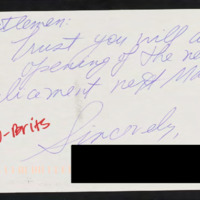 tlemen:
Trust you will a
opening of the ne
liament next Ma
Sincerely,
-Brits